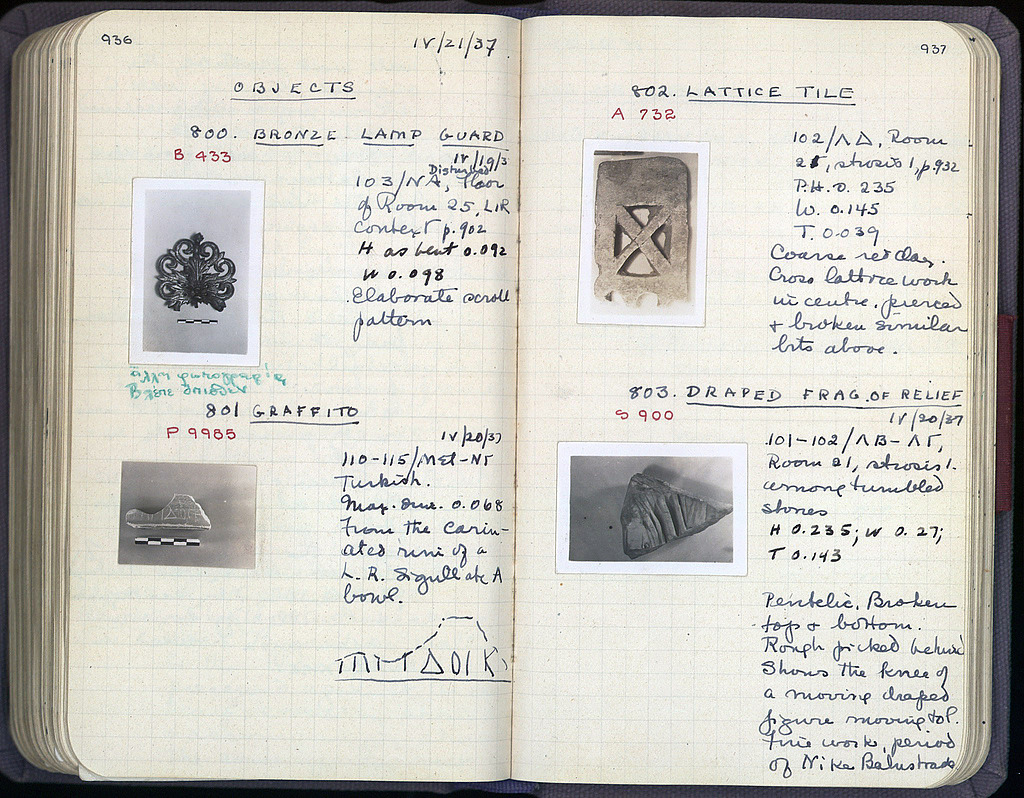 936
IV/21/37
OBJECTS
800. BRONZE LAMP GUARD
B 433
IV/19/3
Disturbed
103/ΝΑ, floor
of Room 25, LIR
Context p. 902
H as bent 0.092
W 0.098
Elaborate scroll
pattern
άλλη φωτογραφία
Βλέπε όπισθεν
801 GRAFFITO
P 9985
IV/20/37
110-115/
Turkish.
Max. dim. 0.068
From the carin-
ated rim of a
L.R. Sigillate A
bowl.
ΔΟΙΚ
937
802. LATTICE TILE
A 732
102/ΛΔ, Room
21, strosis 1, p. 932
P.H. 0.235
W. 0.145
T. 0.039
Coarse red clay.
Cross lattice work
in centre. pierced
& broken similar
bits above.
803. DRAPED FRAG. OF RELIEF
S 900
IV/20/37
101-102/ΛΒ-ΛΓ,
Room 21, strosis 1.
among tumbled
stones
H 0.235; W 0.27;
T 0.143
Pentelic. Broken
top & bottom.
Rough picked behind
Shows the knee of
a moving draped
figure moving to l.
Fine work, period
of Nike Balustrade